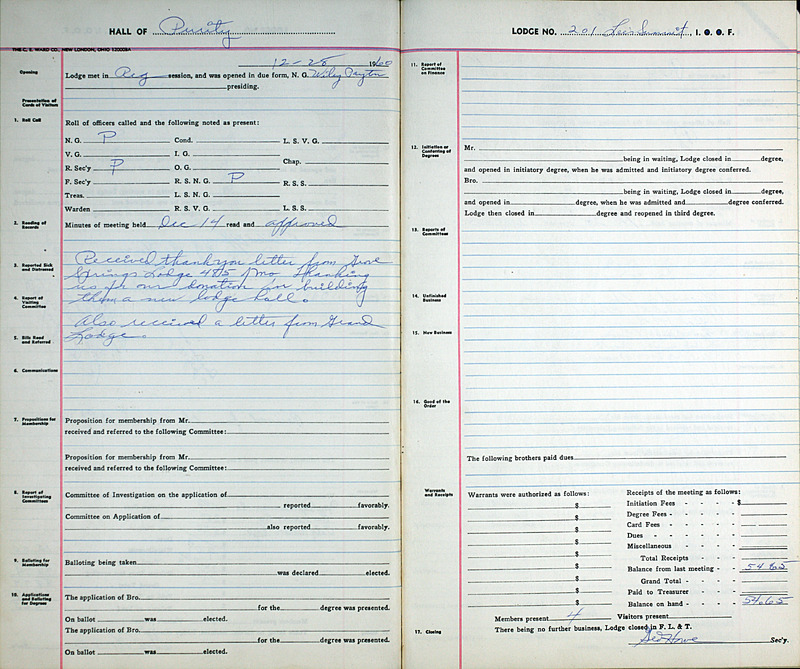 HALL OF Purity
THE C. E. WARD CO., NEW LONDON, OHIO
12-28 1960
Opening
Lodge met in Reg session, and was opened in due form, N. G. Wiley Payton
presiding.
Presentation of Cards of Visitors
1. Roll Call
Roll of officers called and the following noted as present:
N. G. P Cond. L. S. V. G.
V. G. I. G. Chap.
R. Sec'y P O. G.
F. Sec'y R. S. N. G. P R. S. S.
Treas. L. S. N. G.
Warden R. S. V. G. L. S. S.
2. Reading of Records
Minutes of meeting held Dec 14 read and approved
3. Reported Sick and Distressed
Received thankyou letter from Grove
Springs Lodge 475 Mo Thanking
us for our donation for building
4. Report of Visiting Committee
them a new lodge hall.
Also received a letter from Grand
5. Bills Read and Referred
Lodge.
6. Communications
7. Propositions for Membership
Proposition for membership from Mr.
received and referred to the following Committee:
Proposition for membership from Mr.
received and referred to the following Committee:
8. Report of Investigating Committees
Committee of Investigation on the application of
reported favorably.
Committee on Application of
also reported favorably.
9. Balloting for Membership
Balloting being taken
was declared elected.
10. Applications and Balloting for Degrees
The application of Bro.
for the degree was presented.
On ballot was elected.
The application of Bro.
for the degree was presented.
On ballot was elected.
LODGE NO. 201 Lee's Summit, I. O. O. F.
11. Report of Committee on Finance
12. Initiation or Conferring of Degrees
Mr.
being in waiting, Lodge closed in degree,
and opened in initiatory degree, when he was admitted and initiatory degree conferred.
Bro.
being in waiting, Lodge closed in degree,
and opened in degree, when he was admitted and degree conferred.
Lodge then closed in degree and reopened in third degree.
13. Reports of Committees
14. Unfinished Business
15. New Business
16. Good of the Order
The following brothers paid dues
Warrants and Receipts
Warrants were authorized as follows:
$
$
$
$
$
$
$
$
$
Receipts of the meeting as follows:
Initiation Fees - - - - $
Degree Fees - - - - -
Card Fees - - - -
Dues - - - - - -
Miscellaneous - - - -
Total Receipts - -
Balance from last meeting - 54.65
Grand Total - - -
Paid to Treasurer - -
Balance on hand - - - 54.65
Members present 4 Visitors present
17. Closing
There being no further business, Lodge closed in F. L. & T.
Geo Howe Sec'y.